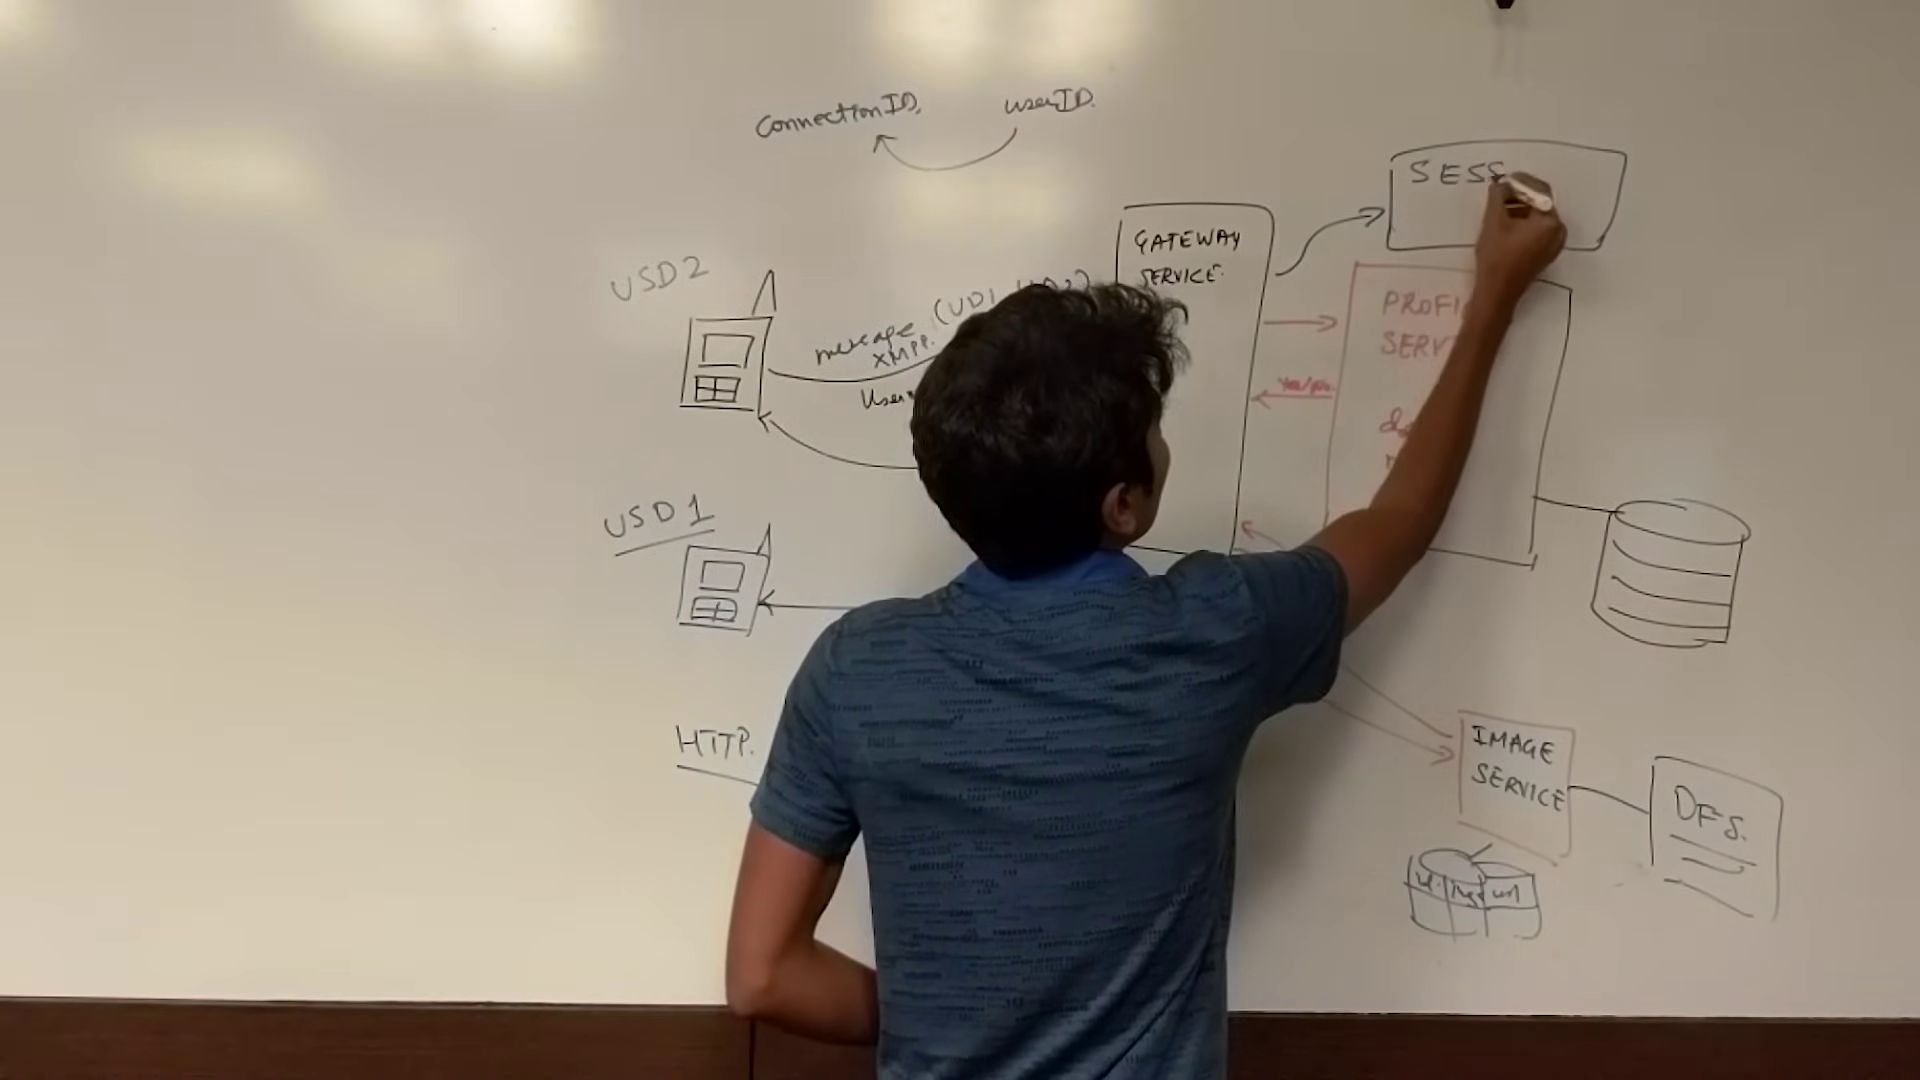 connectionID,
userID.
SESS
GATEWAY
SERVICE.
USD2
message (UD1
XMPP.
User
PROFI
SERV
Yes/No.
USD1
HTTP.
IMAGE
SERVICE
DFS.
url